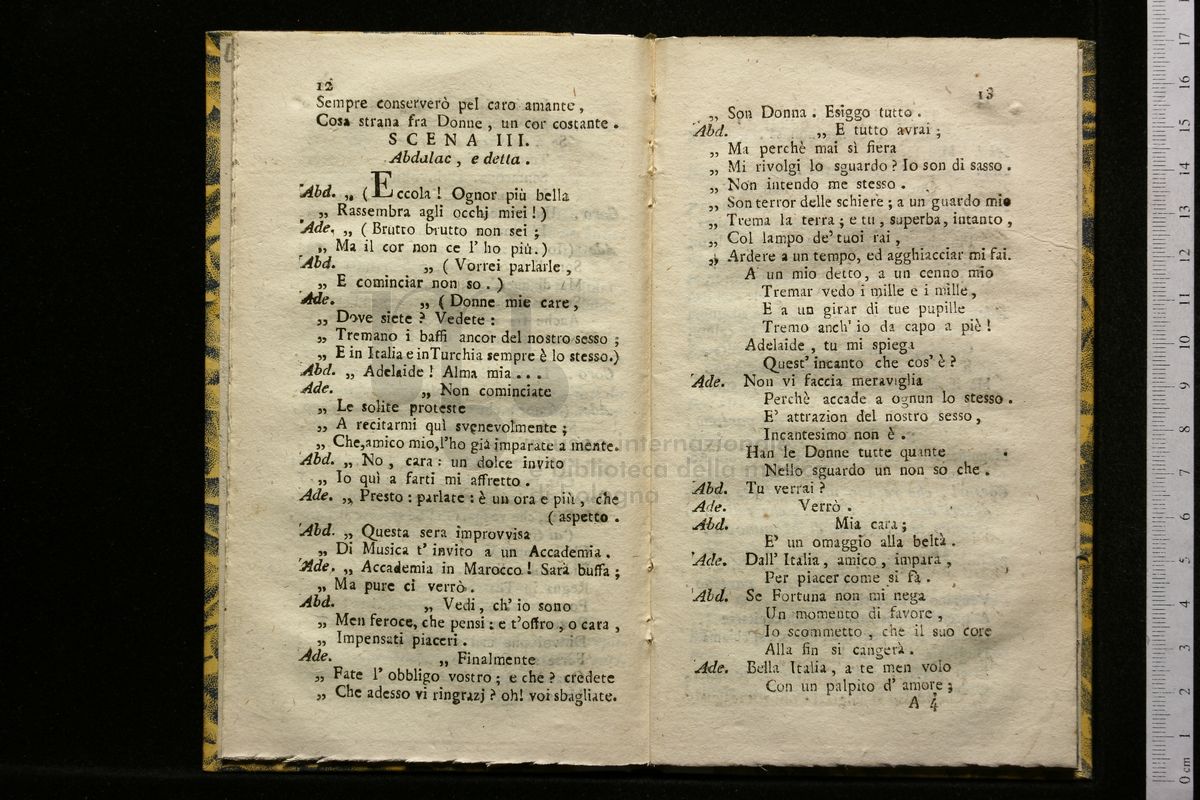 12
Sempre conserverò pel caro amante,
Cosa strana fra Donne, un cor costante.
SCENA III.
Abdalac, e detta.
Abd. „ (Eccola! Ognor più bella
„ Rassembra agli occhj miei!)
Ade. „ (Brutto brutto non sei;
„ Ma il cor non ce l'ho più.)
Abd. „ (Vorrei parlarle,
„ E cominciar non so.)
Ade. „ (Donne mie care,
„ Dove siete? Vedete:
„ Tremano i baffi ancor del nostro sesso;
„ E in Italia e in Turchia sempre è lo stesso.)
Abd. „ Adelaide! Alma mia...
Ade. „ Non cominciate
„ Le solite proteste
„ A recitarmi quì svenevolmente;
„ Che, amico mio, l'ho già imparate a mente.
Abd. „ No, cara: un dolce invito
„ Io quì a farti mi affretto.
Ade. „ Presto: parlate: è un ora e più, che
(aspetto.
Abd. „ Questa sera improvvisa
„ Di Musica t'invito a un Accademia.
Ade. „ Accademia in Marocco! Sarà buffa;
„ Ma pure ci verrò.
Abd. „ Vedi, ch'io sono
„ Men feroce, che pensi: e t'offro, o cara,
„ Impensati piaceri.
Ade. „ Finalmente
„ Fate l'obbligo vostro; e che? credete
„ Che adesso vi ringrazj? oh! voi sbagliate.
13
„ Son Donna. Esiggo tutto.
Abd. „ E tutto avrai;
„ Ma perchè mai sì fiera
„ Mi rivolgi lo sguardo? Io son di sasso.
„ Non intendo me stesso.
„ Son terror delle schiere; a un guardo mio
„ Trema la terra; e tu, superba, intanto,
„ Col lampo de' tuoi rai,
„ Ardere a un tempo, ed agghiacciar mi fai.
A un mio detto, a un cenno mio
Tremar vedo i mille e i mille,
E a un girar di tue pupille
Tremo anch'io da capo a piè!
Adelaide, tu mi spiega
Quest'incanto che cos'è?
Ade. Non vi faccia meraviglia
Perchè accade a ognun lo stesso.
E' attrazion del nostro sesso,
Incantesimo non è.
Han le Donne tutte quante
Nello sguardo un non so che.
Abd. Tu verrai?
Ade. Verrò.
Abd. Mia cara;
E' un omaggio alla beltà.
Ade. Dall'Italia, amico, impara,
Per piacer come si fà.
Abd. Se Fortuna non mi nega
Un momento di favore,
Io scommetto, che il suo core
Alla fin si cangerà.
Ade. Bella Italia, a te men volo
Con un palpito d'amore;
A 4
museo internazionale
biblioteca della musica
bologna
0 cm 1 2 3 4 5 6 7 8 9 10 11 12 13 14 15 16 17